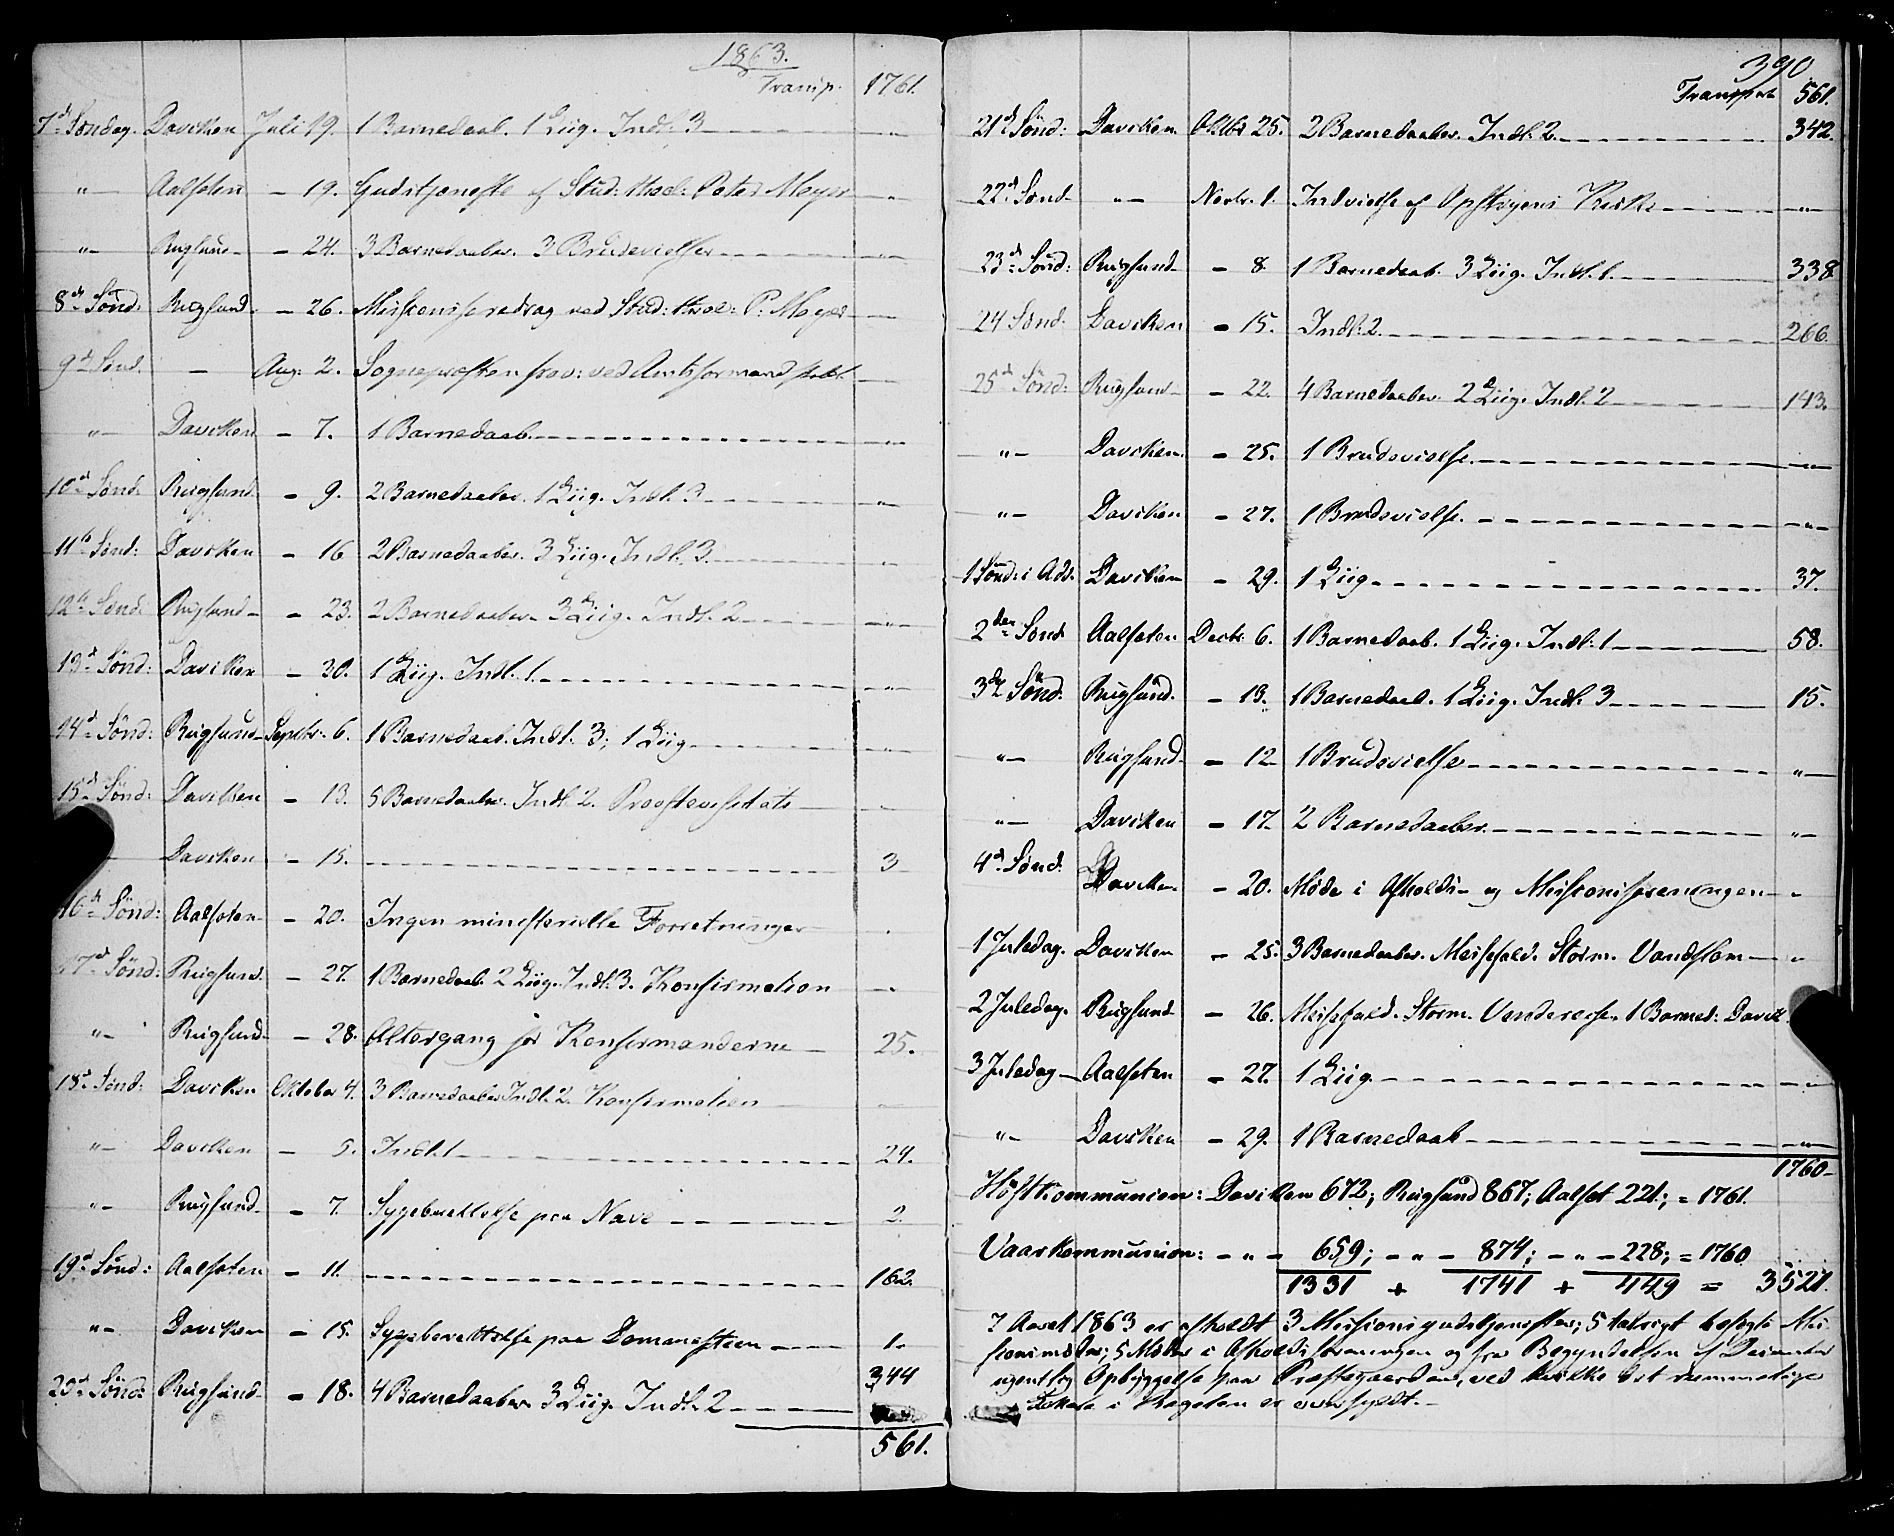 1863.
Transp. 1761.
7d Søndag. Daviken Juli 19. 1 Barnedaab. 1 Liig. Indl. 3 "
" Aalfoten - 19. Gudstjeneste af Stud: theol: Peter Meyer "
" Rugsund - 24. 3 Barnedaaber. 3 Brudevielser "
8de Sønd: Rugsund - 26. Missionsforedrag ved Stud: theol: P. Meyer
9de Sønd. - Aug. 2. Sognepræsten frav: ved Amtsformandskabet
" Daviken - 7. 1 Barnedaab. "
10de Sønd. Rugsund - 9. 2 Barnedaaber. 1 Liig. Indl. 3 "
11te Sønd: Daviken - 16 2 Barnedaaber. 3 Liig. Indl. 3. "
12te Sønd. Rugsund - 23. 2 Barnedaaber. 3 Liig. Indl. 2 "
13d Sønd: Daviken - 30. 1 Liig. Indl. 1. "
14d Sønd: Rugsund Septbr. 6. 1 Barnedaab. Indl. 3; 1 Liig "
15d Sønd: Daviken - 13. 5 Barnedaaber. Indl 2. Provstevisitats "
Daviken - 15. 3
16de Sønd: Aalfoten - 20. Ingen ministerielle Forretninger
17d Sønd: Rugsund. - 27. 1 Barnedaab. 2 Liig. Indl. 3. Konfirmation "
" Rugsund - 28. Altergang for Konfirmanderne 25.
18d Sønd: Daviken Oktober 4. 3 Barnedaaber Indl. 2. Konfirmation "
" Daviken - 5. Indl. 1 24.
" Rugsund - 7. Sygeberettelse paa Nave 2.
19d Sønd: Aalfoten - 11. 162.
" Daviken - 15. Sygeberettelse paa Domanesteen 1.
20d Sønd: Rugsund - 18. 4 Barnedaaber 3 Liig. Indl. 2 344
561.
390
Transport 561.
21d Sønd: Daviken Oktbr 25. 2 Barnedaaber. Indl. 2. 342.
22d Sønd " Novbr. 1. Indvielse af Opstryens Kirke "
23d Sønd: Rugsund - 8 1 Barnedaab. 3 Liig. Indl. 1. 338
24 Sønd. Daviken - 15. Indl. 2. 266.
25d Sønd: Rugsund - 22. 4 Barnedaaber. 2 Liig. Indl. 2 143.
" Daviken. - 25. 1 Brudevielse. "
" Daviken - 27. 1 Brudevielse. "
1 Sønd: i Adv. Daviken - 29. 1 Liig 37.
2den Sønd Aalfoten Decbr. 6. 1 Barnedaab. 1 Liig. Indl. 1 58.
3de Sønd. Rugsund. - 13. 1 Barnedaab. 1 Liig. Indl. 3 15.
" Rugsund - 12 1 Brudevielse "
" Daviken - 17. 2 Barnedaaber. "
4d Sønd. Daviken - 20. Møde i Afholds- og Missionsforeningen "
1 Juledag. Daviken - 25. 3 Barnedaaber. Messefald. Storm. Vandflom "
2 Juledag. Rugsund - 26. Messefald. Storm. 1 Barned: Davik
3 Juledag Aalfoten - 27. 1 Liig. "
" Daviken - 29. 1 Barnedaab "
1760
Høstkommunion: Daviken 672; Rugsund 867; Aalfot 221; = 1761.
Vaarkommunion: - " - 659; - " - 874; - " - 228; = 1760
1331 + 1741 + 449 = 3521.
I Aaret 1863 er afholdt 3 Missionsgudstjenester; 5 talrigt besøgte Mis-
sionsmøder; 5 Møder i Afholdsforeningen og fra Begyndelsen af December
ugentlig Opbyggelse paa Præstegaarden, ved hvilke det rummelige
Lokale i er overfyldt.